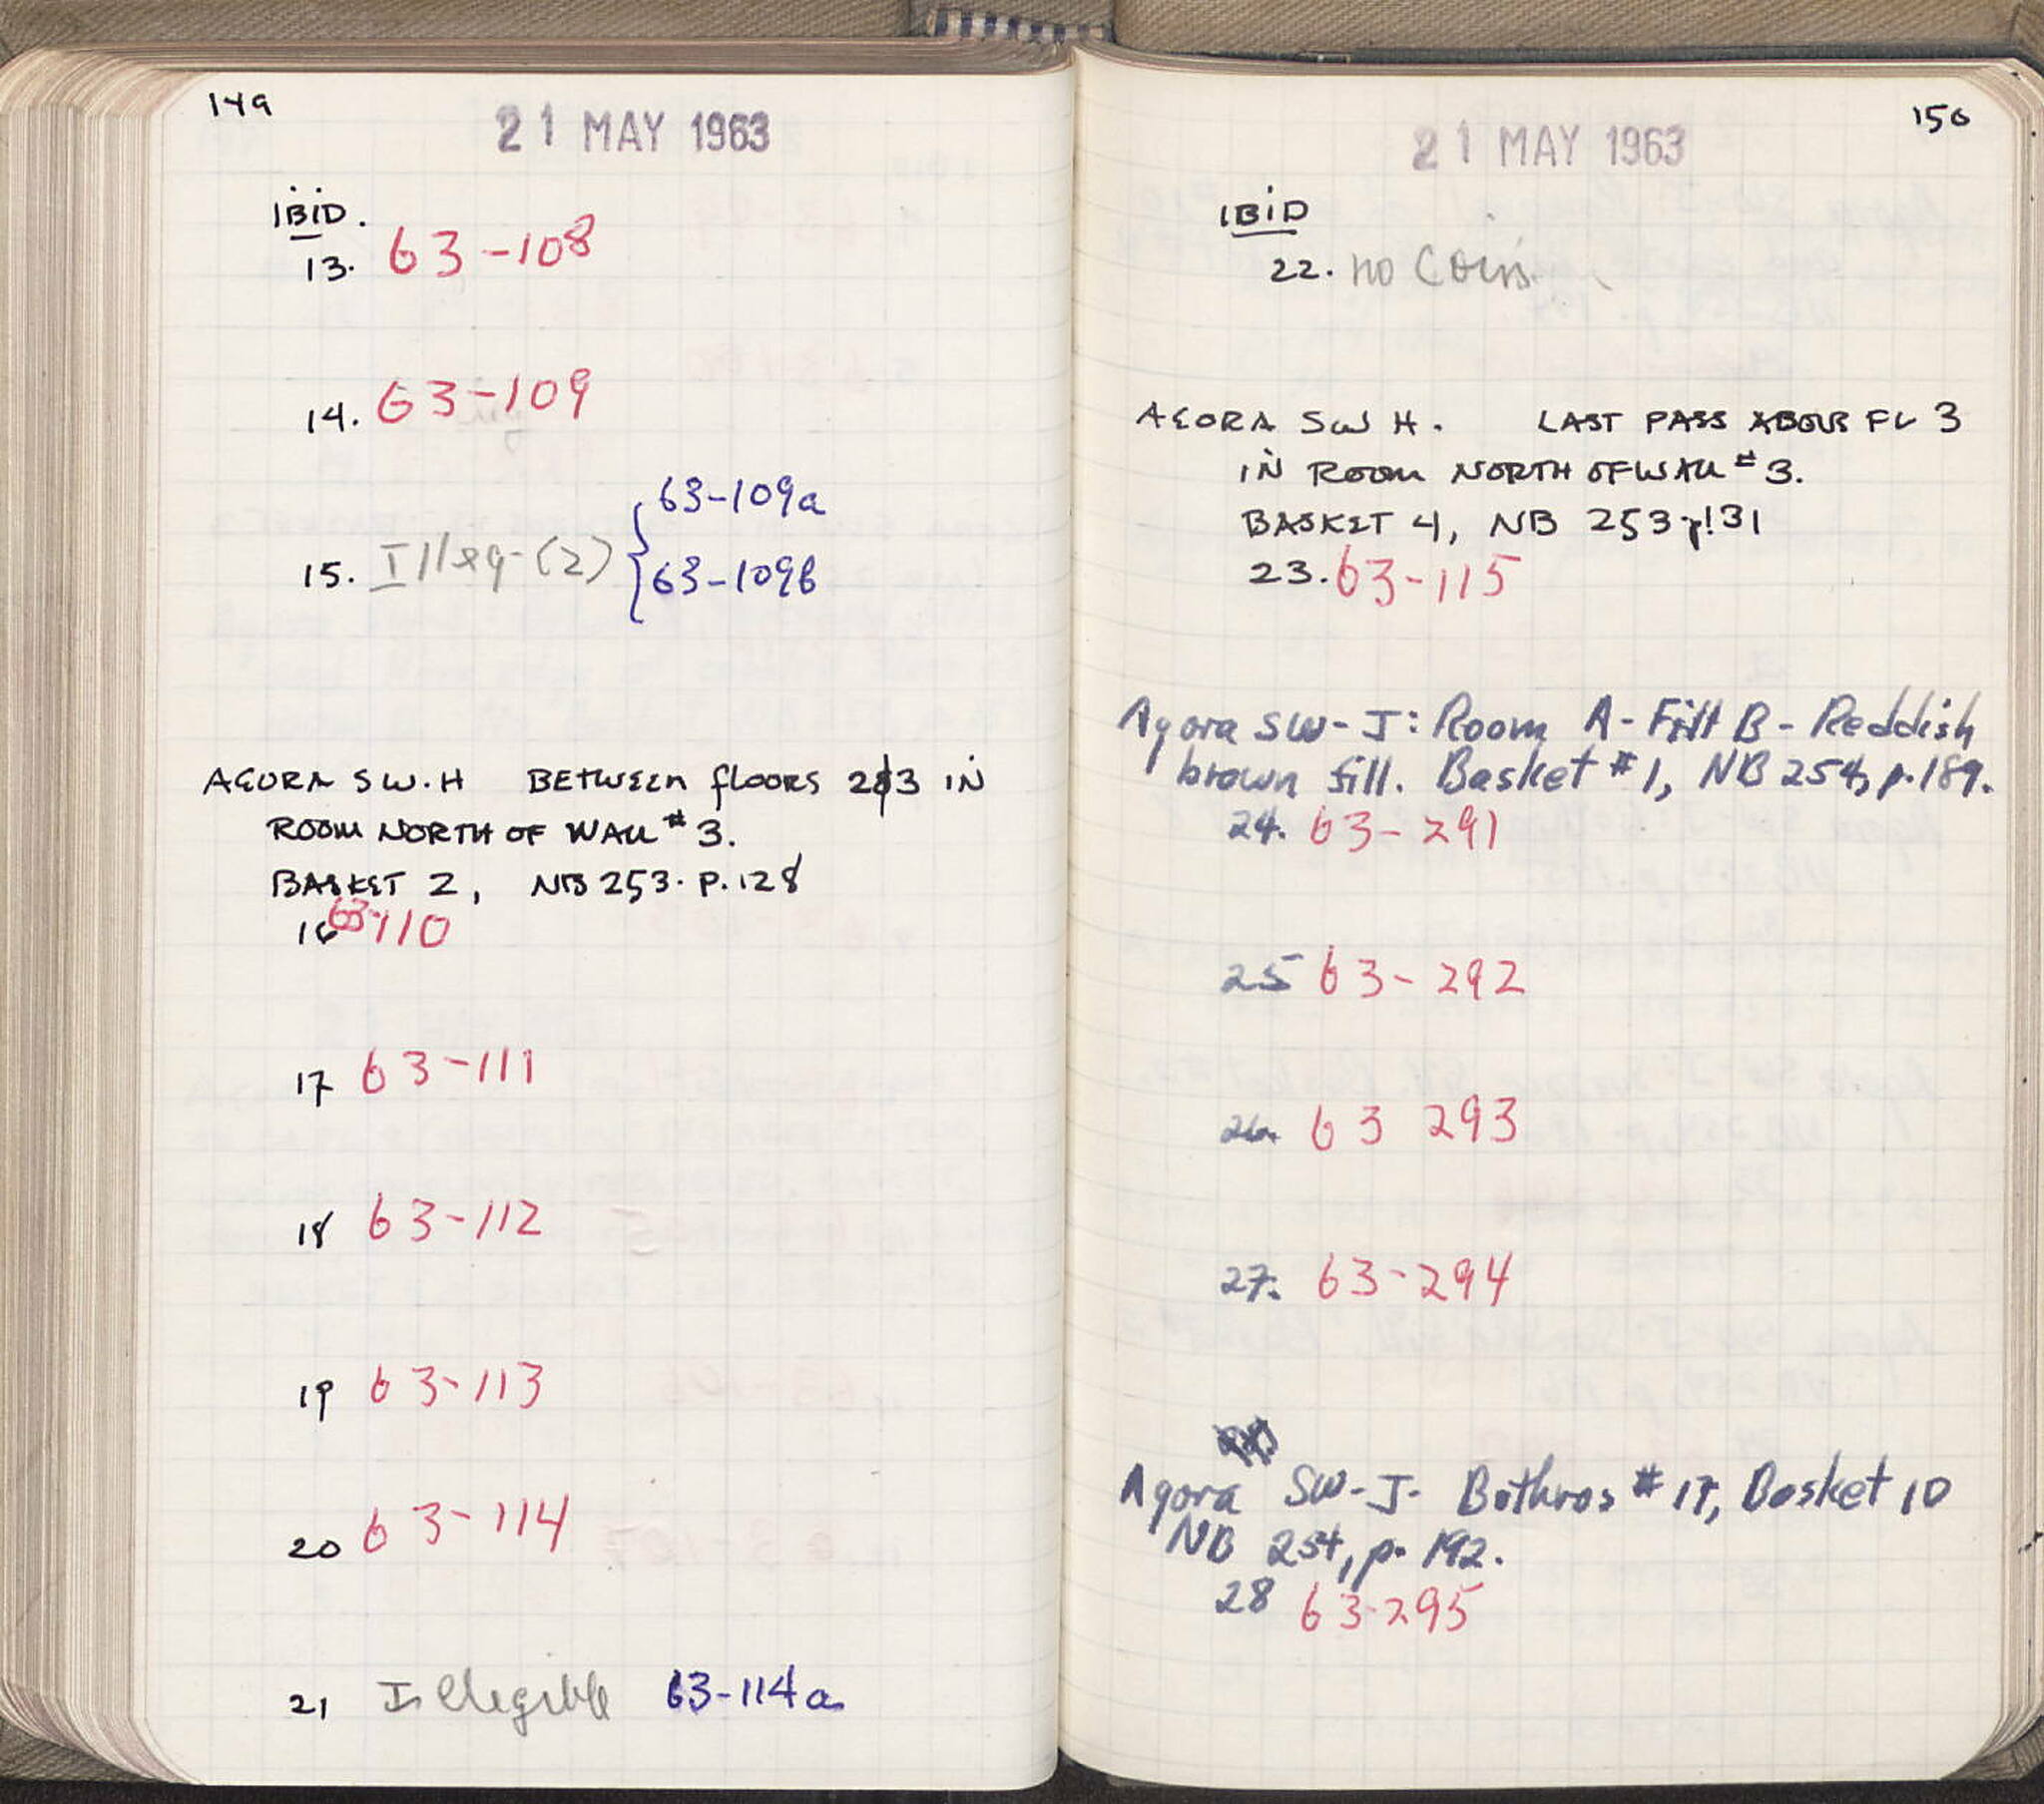 149
21 MAY 1963
IBID.
13. 63-108
14. 63-109
15. Illeg-(2) { 63-109a
63-109b
AGORA SW.H BETWEEN floors 2&3 IN
ROOM NORTH OF WALL #3.
BASKET 2, NB 253. P.128
16 63-110
17 63-111
18 63-112
19 63-113
20 63-114
21 Illegible 63-114a
150
21 MAY 1963
IBID
22. no Coins
AGORA SW H. LAST PASS ABOVE FL 3
IN ROOM NORTH OF WALL #3.
BASKET 4, NB 253 p131
23. 63-115
Agora SW-J: Room A-Fill B-Reddish
brown fill. Basket #1, NB 254, p.189.
24. 63-291
25 63-292
26. 63 293
27. 63-294
Agora SW-J- Bothros #17, Basket 10
NB 254, p. 192.
28 63-295